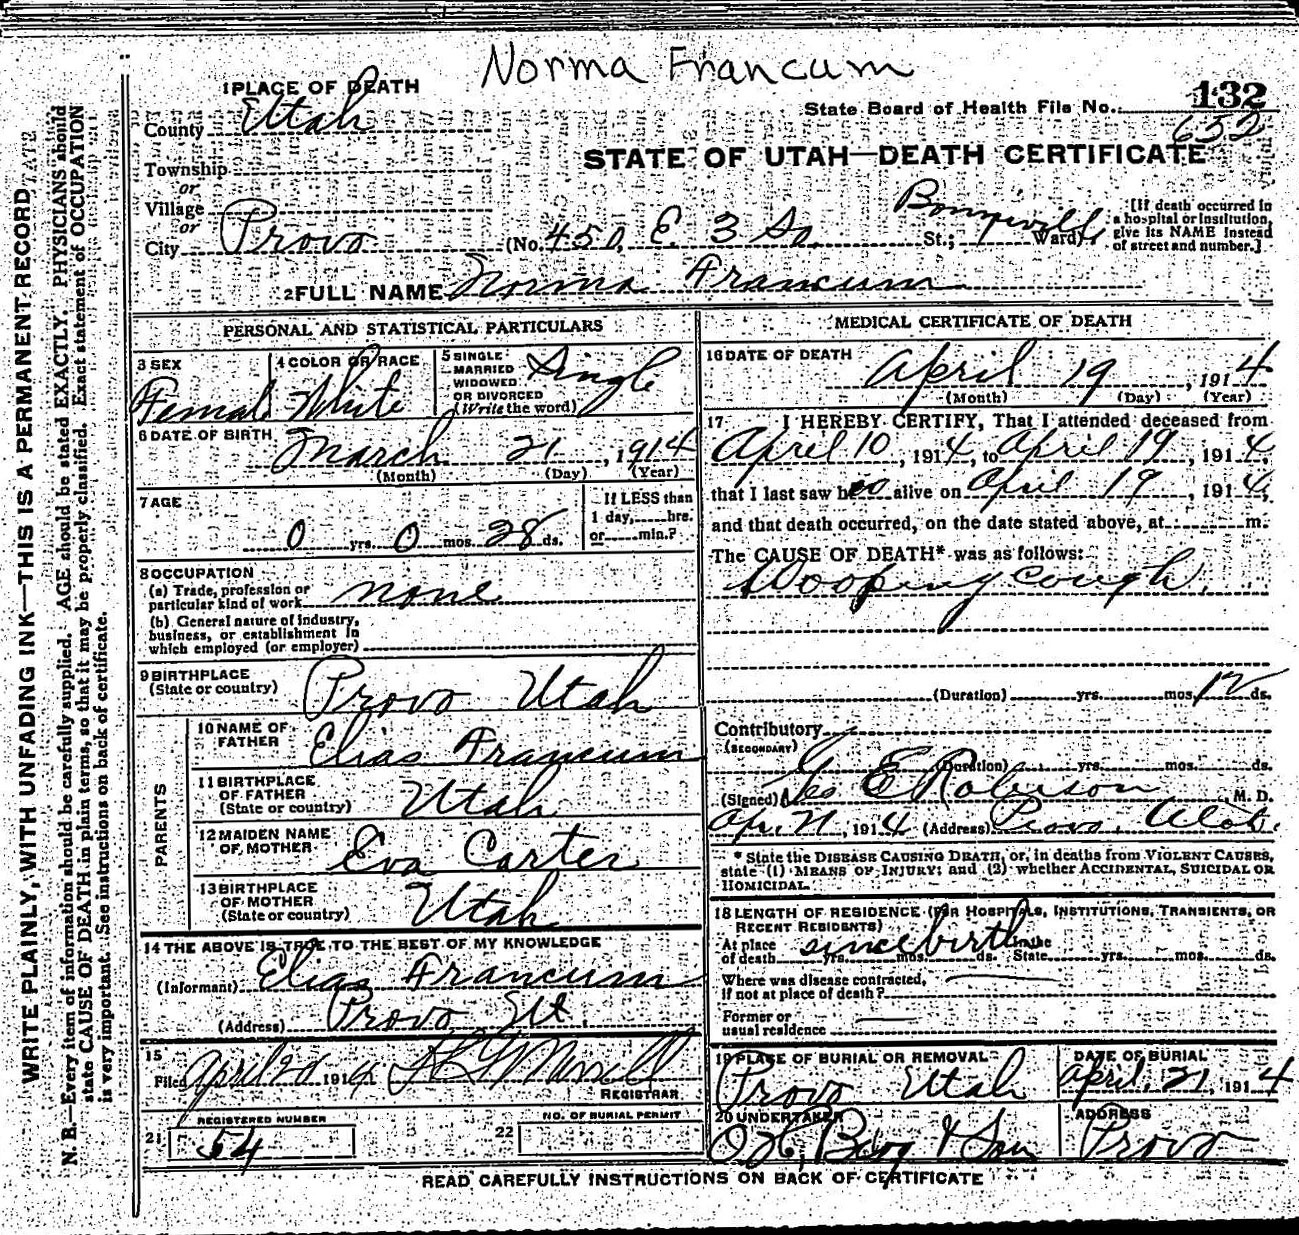 Norma Francum
1 PLACE OF DEATH
State Board of Health File No. 132
County Utah
652
STATE OF UTAH—DEATH CERTIFICATE
Township
or
Village
or
City Provo (No. 450, E. 3 So. St.; Ward)
[If death occurred in
a hospital or institution,
give its NAME instead
of street and number.]
2 FULL NAME Norma Francum
PERSONAL AND STATISTICAL PARTICULARS
3 SEX Female
4 COLOR OR RACE White
5 SINGLE
MARRIED
WIDOWED
OR DIVORCED
(Write the word) Single
6 DATE OF BIRTH March 21, 1914
(Month) (Day) (Year)
7 AGE
0 yrs. 0 mos. 28 ds.
If LESS than
1 day, hrs.
or min.?
8 OCCUPATION
(a) Trade, profession or
particular kind of work none
(b) General nature of industry,
business, or establishment in
which employed (or employer)
9 BIRTHPLACE
(State or country) Provo Utah
PARENTS
10 NAME OF
FATHER Elias Francum
11 BIRTHPLACE
OF FATHER
(State or country) Utah
12 MAIDEN NAME
OF MOTHER Eva Carter
13 BIRTHPLACE
OF MOTHER
(State or country) Utah
14 THE ABOVE IS TRUE TO THE BEST OF MY KNOWLEDGE
(Informant) Elias Francum
(Address) Provo Ut.
15
Filed April 20 1914
REGISTRAR
REGISTERED NUMBER
21 54
NO. OF BURIAL PERMIT
22
MEDICAL CERTIFICATE OF DEATH
16 DATE OF DEATH
April 19, 1914
(Month) (Day) (Year)
17 I HEREBY CERTIFY, That I attended deceased from
April 10, 1914, to April 19, 1914
that I last saw h alive on April 19, 1914,
and that death occurred, on the date stated above, at m.
The CAUSE OF DEATH* was as follows:
Wooping Cough.
(Duration) yrs. mos. 12 ds.
Contributory
(SECONDARY)
(Duration) yrs. mos. ds.
(Signed) Geo E Robison M. D.
Apr. 21, 1914 (Address) Provo,
* State the DISEASE CAUSING DEATH, or, in deaths from VIOLENT CAUSES,
state (1) MEANS OF INJURY; and (2) whether ACCIDENTAL, SUICIDAL OR
HOMICIDAL.
18 LENGTH OF RESIDENCE (FOR HOSPITALS, INSTITUTIONS, TRANSIENTS, OR
RECENT RESIDENTS)
At place
of death since birth yrs. mos. ds. In the State yrs. mos. ds.
Where was disease contracted,
if not at place of death?
Former or
usual residence
19 PLACE OF BURIAL OR REMOVAL
Provo Utah
DATE OF BURIAL
April, 21, 1914
20 UNDERTAKER
O H, Berg & Son
ADDRESS
Provo
READ CAREFULLY INSTRUCTIONS ON BACK OF CERTIFICATE
WRITE PLAINLY, WITH UNFADING INK—THIS IS A PERMANENT RECORD
N. B.—Every item of information should be carefully supplied. AGE should be stated EXACTLY. PHYSICIANS should
state CAUSE OF DEATH in plain terms, so that it may be properly classified. Exact statement of OCCUPATION
is very important. See instructions on back of certificate.